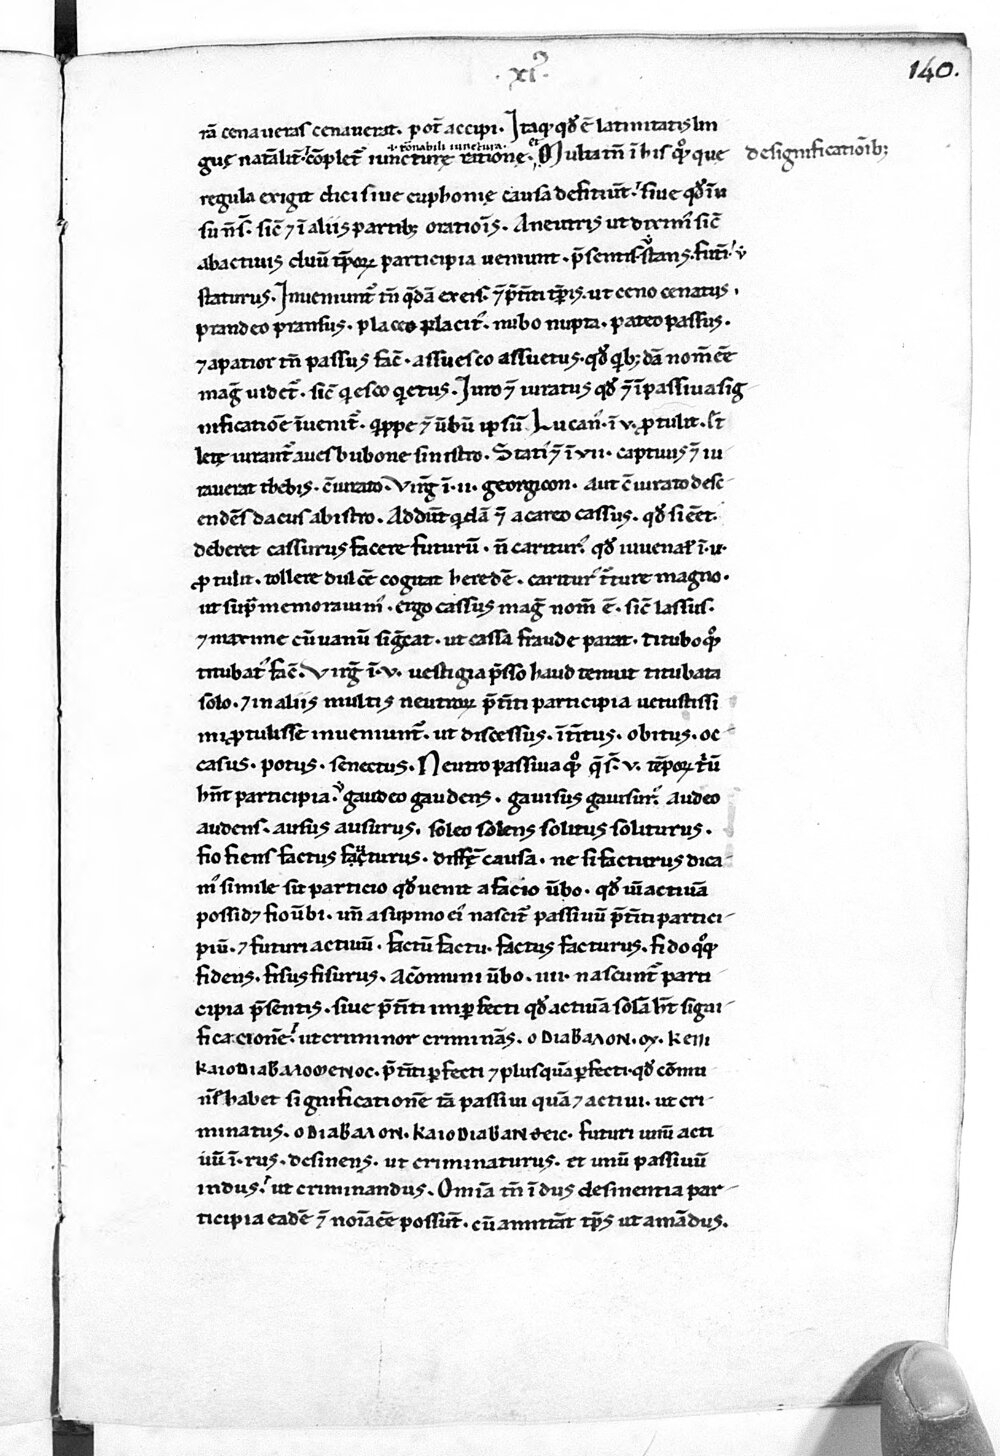 ·xi·
140.
rā cena ueras cenauerat. pot̄ accipi. Itaq; qđ ē latinitatis lin
·i· rōnabili iunctura.
guę natālit̄. cōplet̄ iuncturę ratione. et Multa tn̄ ī his qͦq; que
de significatiōib;
regula exigit dici siue euphonię causa defitiūt. siue qđ ī u
su n̄ s̄. sic̄ ⁊ ī aliis partib; oratiōis. A neutris ut diximꝰ sic̄
ab actiuis duū tp̄oꝝ participia ueniunt. p̄sentis. stans. futi. ů
staturus. Inueniunt̄ tn̄ q̄dā ex eis. ⁊ p̄t̄iti tp̄is. ut ceno cenatus.
prandeo pransus. placeo placitꝰ. nubo nupta. pateo passus.
⁊ a patior tn̄ passus fac̄. assuesco assuetus. qđ qib; dā nom̄ ēē
maḡ uidet̄. sic̄ qiesco qietus. Iuro ⁊ iuratus qđ ⁊ ī passiua sig
nificatiōe īuenit̄. qippe ⁊ ūbū ipsū Lucanꝰ ī v. ptulit.
letę iurant̄ aues bubone sinistro. Statiꝰ ī vii. captiuis ⁊ iu
rauerat thebis. c̄iurato. Virḡ ī. ii. georgicon. Aut c̄iurato desc
endēs dacus ab istro. Addūt qidā ⁊ a careo cassus. qđ si eēt.
deberet cassurus facere futurū. n̄ cariturꝰ. qđ iuuenaľ ī. u.
ptulit. tollere dulcē cogitat heredē. cariturꝰ t̄ture magno.
ut sup̄ memorauimꝰ. ergo cassus maḡ nom̄ ē. sic̄ lassus.
⁊ maxime cū uanū siḡcat. ut cassa fraude parat. titubo qͦq;
titubatꝰ fac̄. Virḡ ī. v. uestigia p̄sso haud tenuit titubata
solo. ⁊ in aliis multis neutroꝝ p̄t̄iti participia uetustissi
mi ptulisse inueniunt̄. ut discessus. īt̄itus. obitus. oc
casus. potus. senectus. Neutro passiua qͦq; q̄ s̄. v. tēpoꝝ t̄ū
hn̄t participia. ů gaudeo gaudens. gauisus gauisurꝰ. audeo
audens. ausus ausurus. soleo solens solitus soliturus.
fio fiens factus facturus. diff̄ę causa. ne si facturus dica
mꝰ simile sit particio qđ uenit a facio ūbo. qđ ūi actiuā
possid⁊ fio ūbi. un̄ a supino eiꝰ nascit̄ passiuū p̄t̄iti partici
piū. ⁊ futuri actiuū. factū factu. factus facturus. fido qͦq;
fidens. fisus fisurus. A cōmuni ūbo. iiii. nascunt̄ parti
cipia p̄sentis. siue p̄t̄iti imꝑfecti qđ actiuā solā hēt signi
ficacionē. ut criminor criminās. ο ΔιαΒαλον. ογ. κειι
καιοΔιαΒαλομενος. p̄t̄iti ꝑfecti ⁊ plusquā ꝑfecti. qđ cōmu
n̄ habet significationē tā passiui quā ⁊ actiui. ut cri
minatus. ο ΔιαΒαλον. καιοΔιαΒανθεις. futuri unū acti
uū ī. rus. desinens. ut criminaturus. et unū passiuū
indus. ut criminandus. Omīa tn̄ ī dus desinentia par
ticipia eadē ⁊ noīa eē possūt. cū amittāt tp̄s ut amādus.